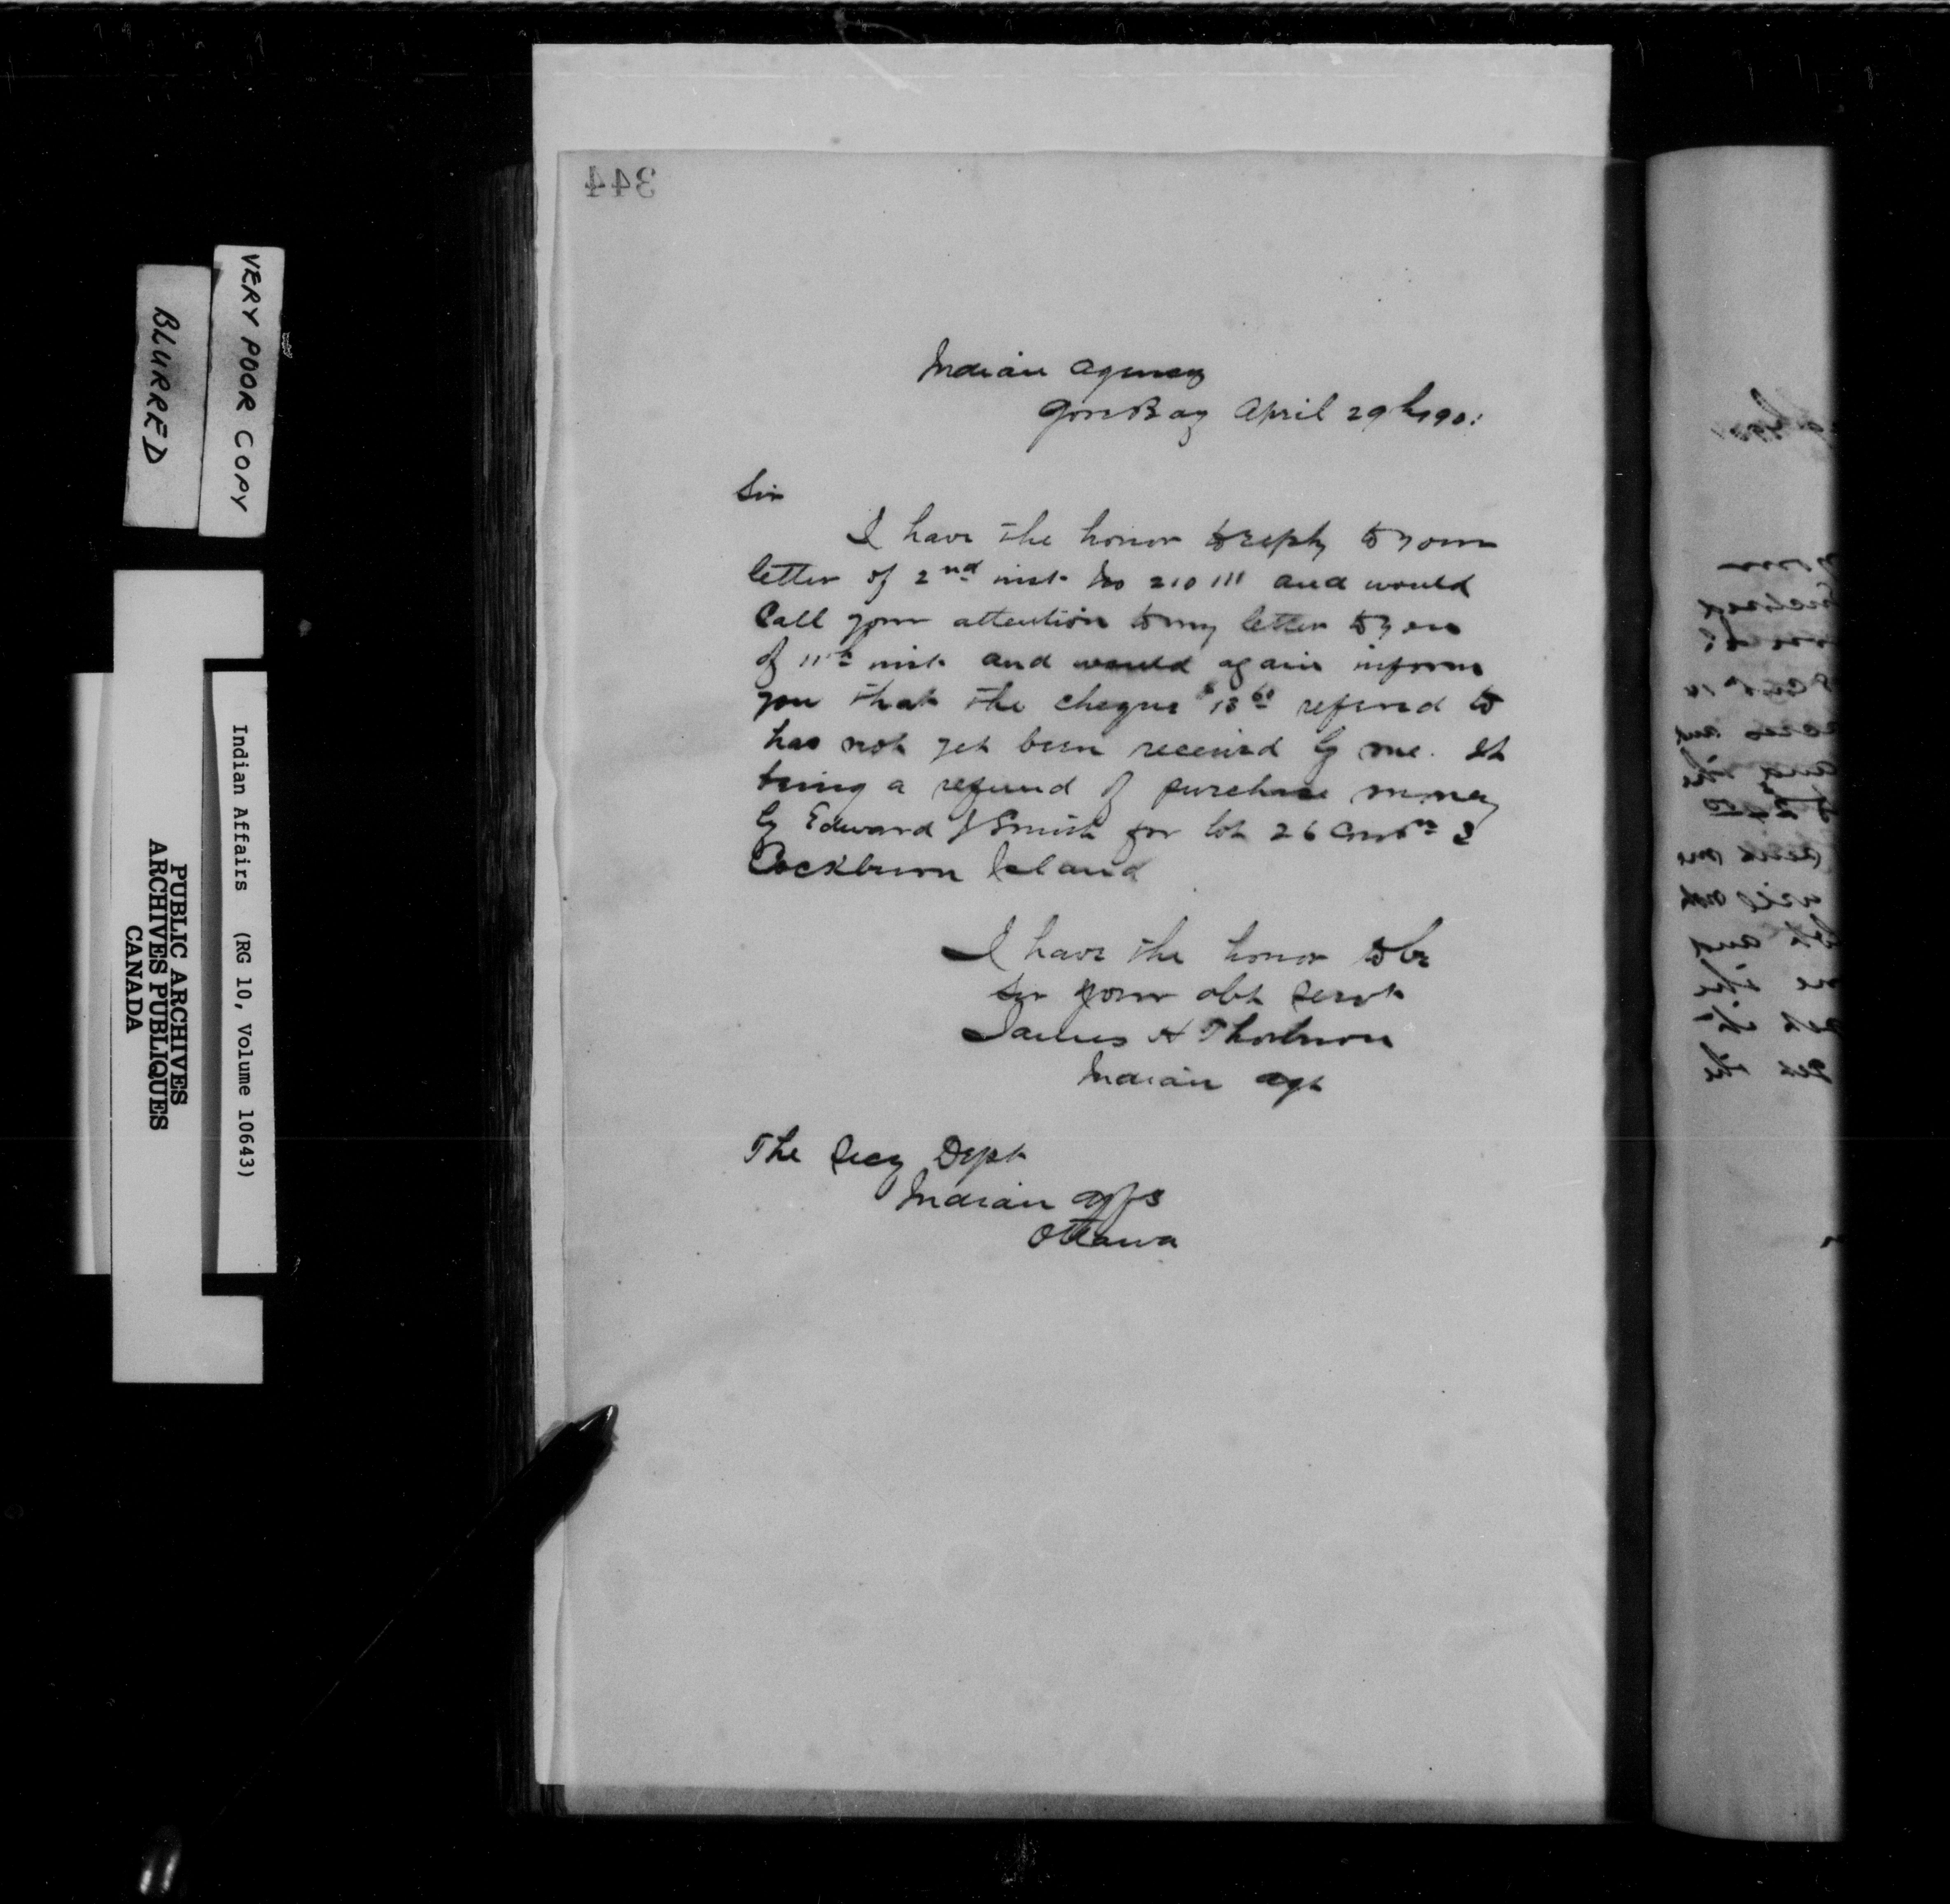 344
Indian Agency
Gore Bay April 29th 1901
Sir
I have the honor to reply to your
letter of 2nd inst No 210111 and would
Call your attention to my letter to you
of 11th inst and would again inform
you that the cheque $13 60 refered to
has not yet been received by me. It
being a refund of purchase money
by Edward J Smith for lot 26 Con 3
Cockburn Island
I have the honor to be
Sir your obt Servt
James H Thorburn
Indian Agt
The Secy Dept
Indian Affs
Ottawa
VERY POOR COPY
BLURRED
Indian Affairs (RG 10, Volume 10643)
PUBLIC ARCHIVES
ARCHIVES PUBLIQUES
CANADA